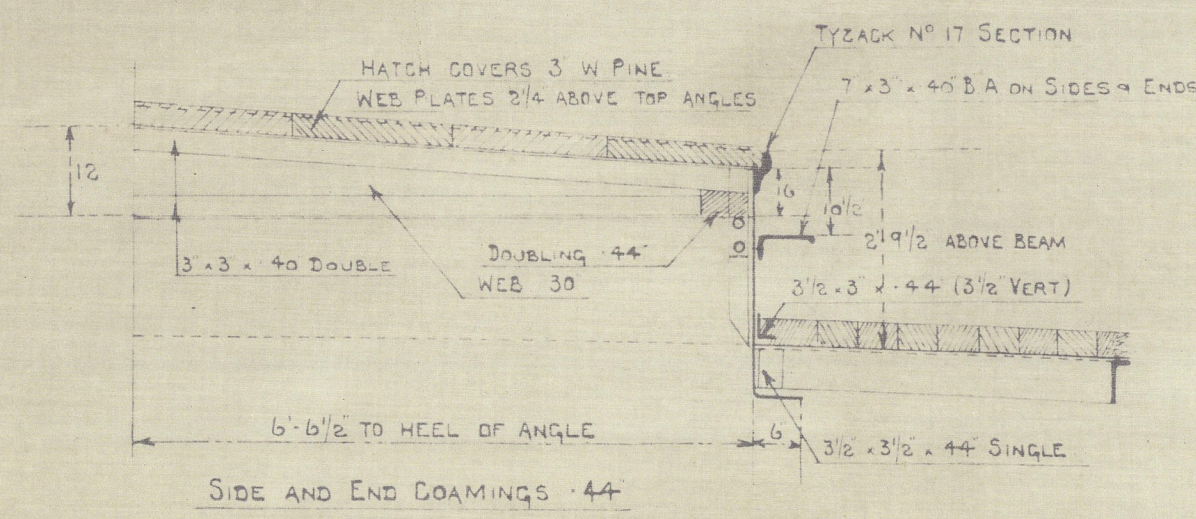 TYZACK Nº 17 SECTION
HATCH COVERS 3" W PINE
WEB PLATES 2¼" ABOVE TOP ANGLES
7" x 3" x ·40" B A ON SIDES & ENDS
12
6
10½"
2' 9½" ABOVE BEAM
3" x 3" x ·40 DOUBLE
DOUBLING ·44"
WEB 30
3½" x 3" x ·44" (3½" VERT)
6'-6½" TO HEEL OF ANGLE
6"
3½" x 3½" x 44" SINGLE
SIDE AND END COAMINGS ·44"